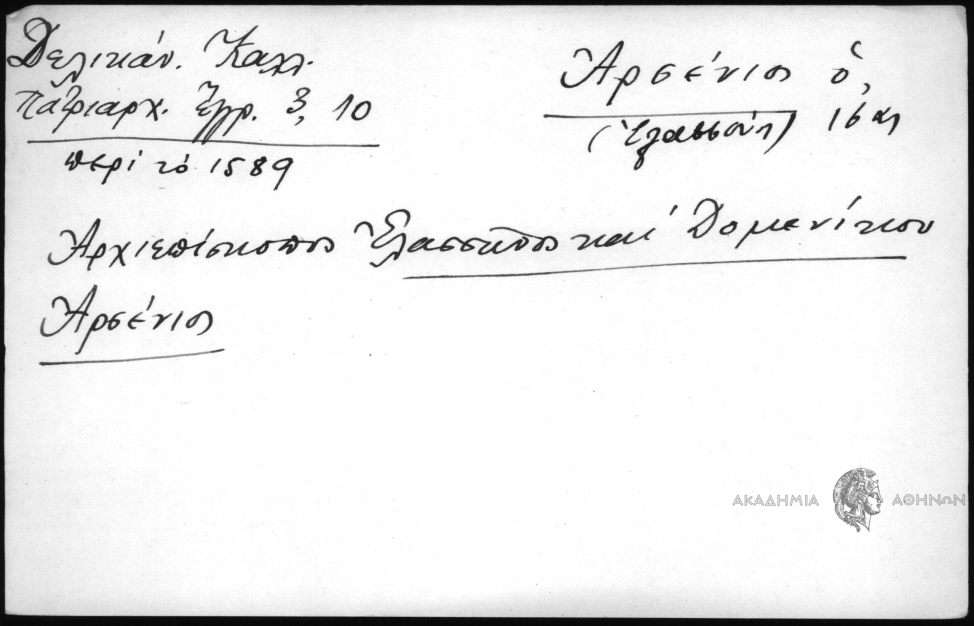 Δελικάν. Καλλ.
Πατριαρχ. Έγγρ. 3, 10
περί τό 1589
Ἀρσένιος ὁ,
(Ἐλασσών) 16 αι
Ἀρχιεπίσκοπος Ἐλασσῶνος καί Δομενίκου
Ἀρσένιος
ΑΚΑΔΗΜΙΑ ΑΘΗΝΩΝ